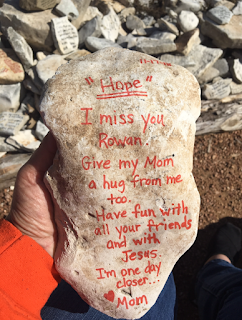 "Hope"
I miss you
Rowan.
Give my Mom
a hug from me
too.
Have fun with
all your friends
and with
Jesus.
I'm one day
closer...
♥ Mom